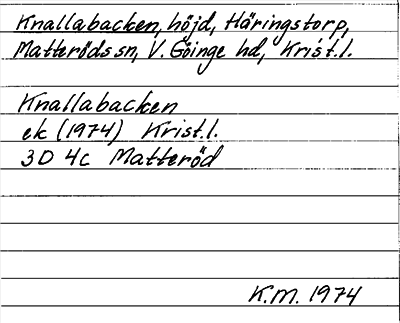 Knallabacken, höjd, Häringstorp,
Matteröds sn, V. Göinge hd, Krist.l.
Knallabacken
ek (1974) Krist.l.
3D 4c Matteröd
K.M. 1974